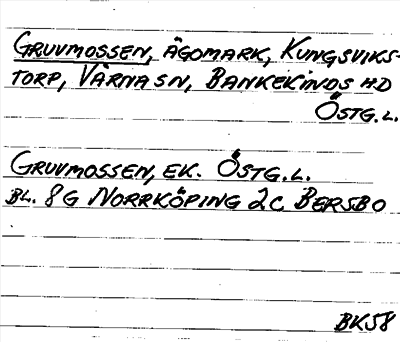 GRUVMOSSEN, ÄGOMARK, KUNGSVIKS-
TORP, VÄRNA SN, BANKEKINDS HD
ÖSTG.L.
GRUVMOSSEN, EK. ÖSTG.L.
BL. 8G NORRKÖPING 2C BERSBO
BK58